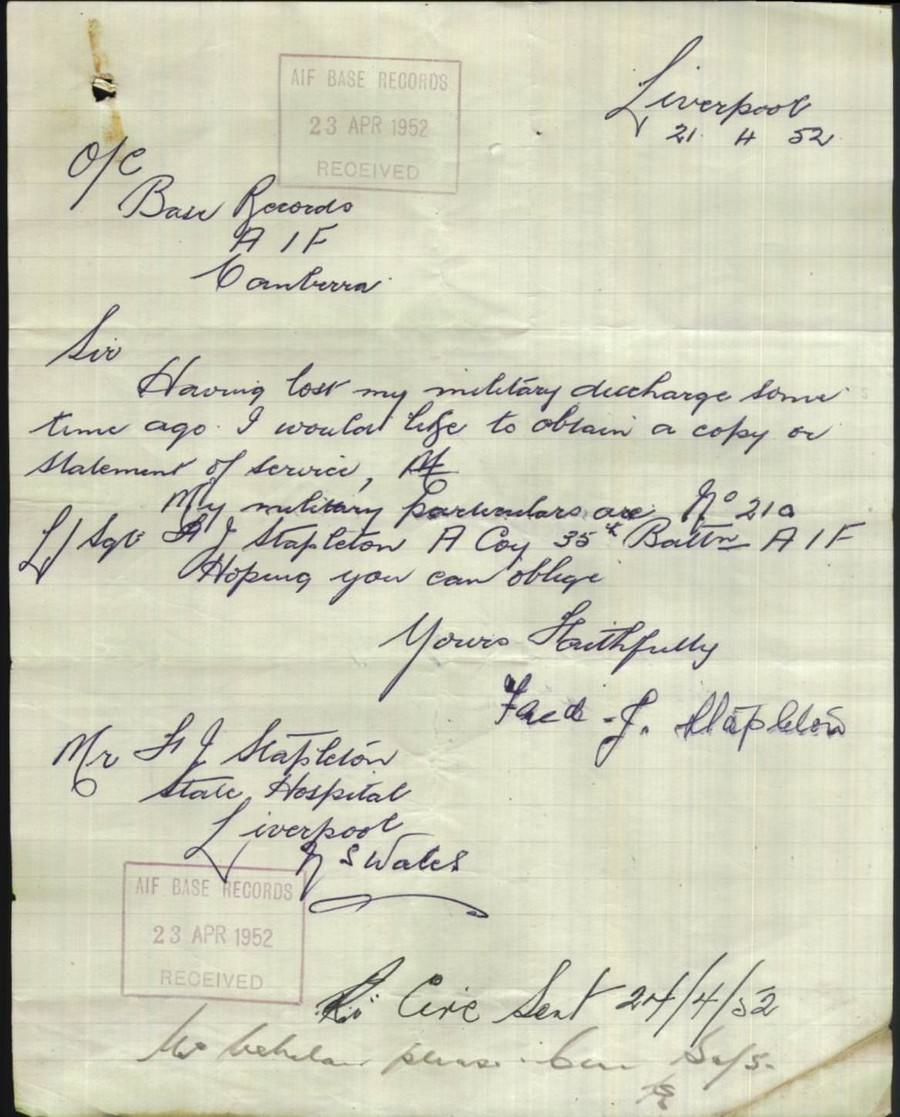 AIF BASE RECORDS
23 APR 1952
RECEIVED
Liverpool
21 4 52
O/C
Base Records
A I F
Canberra
Sir
Having lost my military discharge some
time ago. I would like to obtain a copy or
statement of service,
My military particulars are No 210
L/Sgt F J Stapleton A Coy 35th Battn A I F
Hoping you can oblige
Yours Faithfully
Fred. J. Stapleton
Mr F J Stapleton
State Hospital
Liverpool
N S Wales
AIF BASE RECORDS
23 APR 1952
RECEIVED
Circ Sent 24/4/52
please